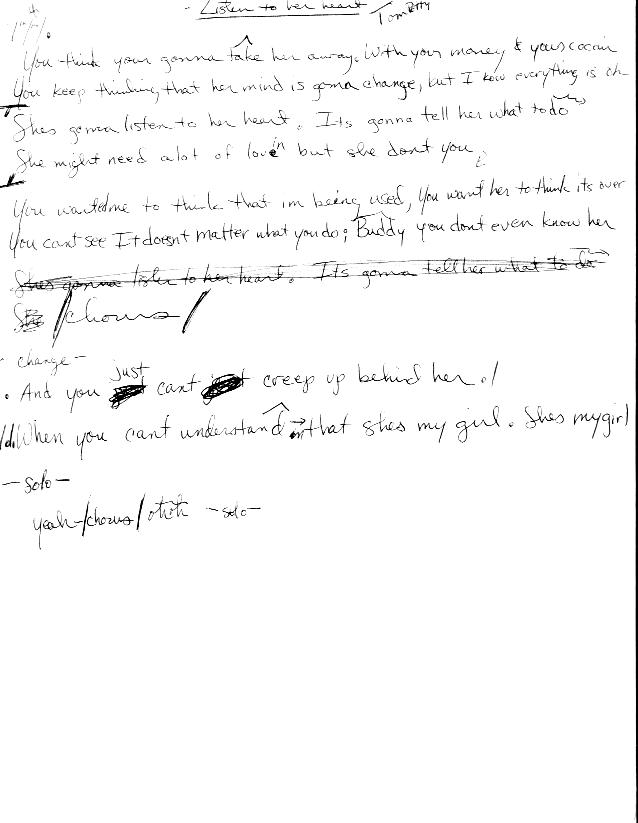 - Listen to her heart Tom Petty
You think your gonna take her away. With your money & yours cocain
You keep thinking that her mind is gonna change, but I know everything is oh
Shes gonna listen to her heart. Its gonna tell her what to do
She might need alot of lovein but she dont you
You wanted me to think that im being used, You want her to think its over
You cant see It doesnt matter what you do; Buddy you dont even know her
Shes gonna listen to her heart. Its gonna tell her what to do
/chorus/
- change -
. And you just cant creep up behind her. /
When you cant understand that shes my girl. Shes my girl
- solo -
yeah - /chorus/ - solo -